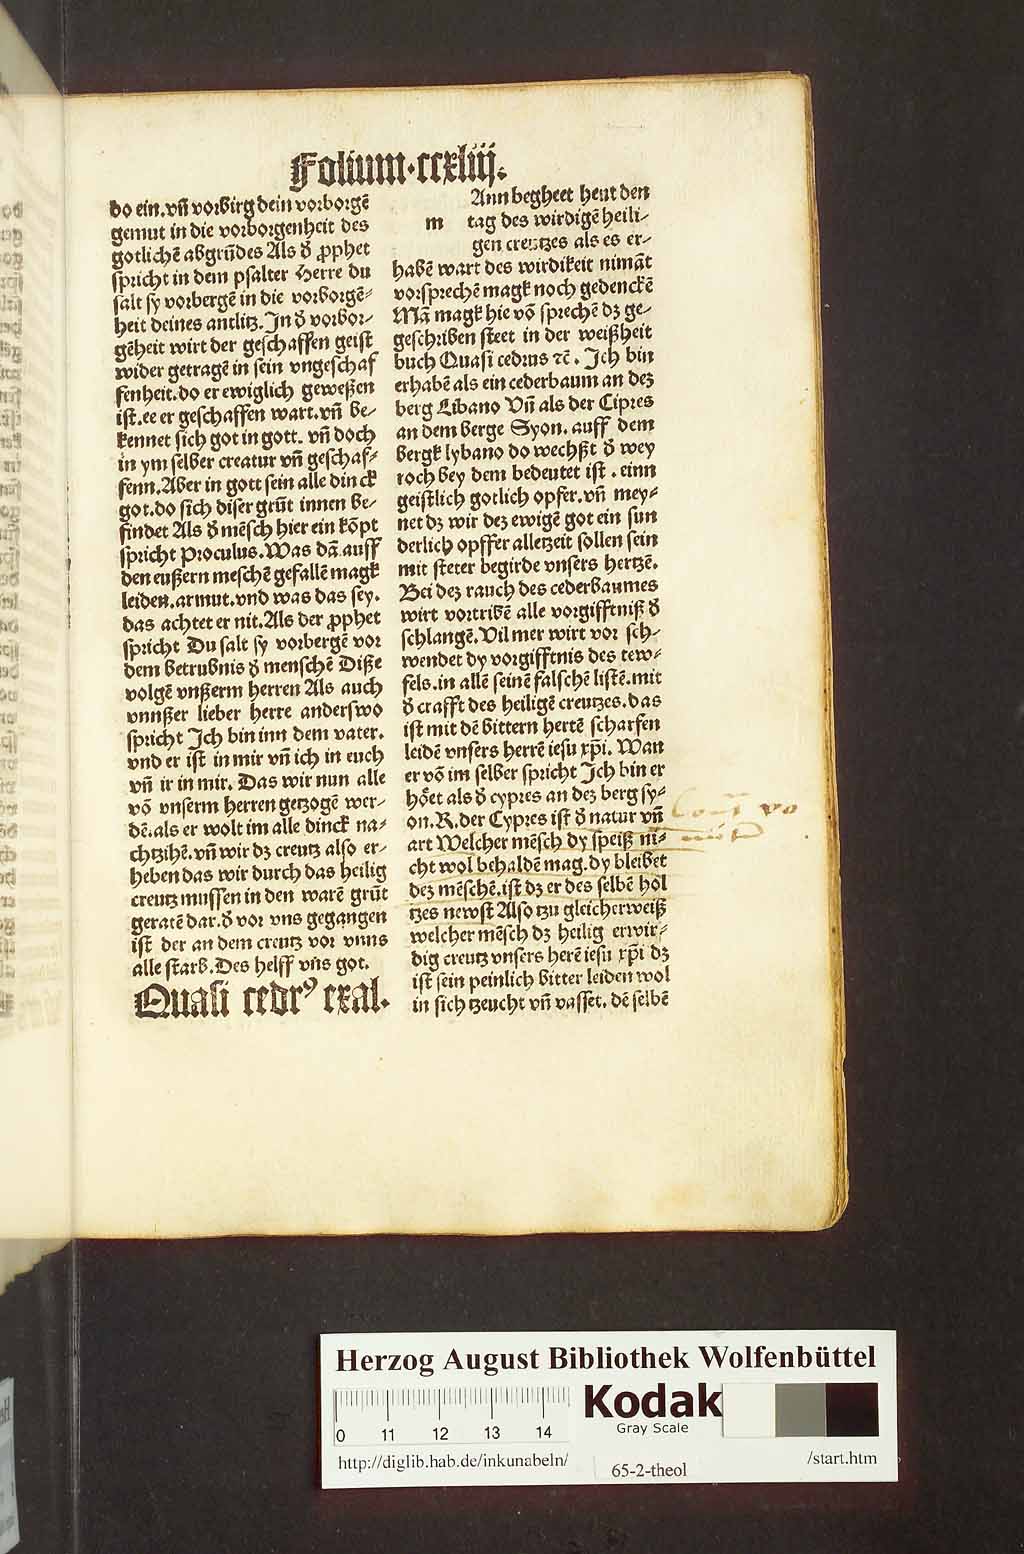 Folium·ccxliij.
do ein.vn̄ vorbirg dein vorborgē
gemut in die vorborgenheit des
gotlichē abgrūdes Als d̕ ꝓphet
spricht in dem psalter Herre du
salt sy vorbergē in die vorborgē-
heit deines antlitz. In d̕ vorbor-
gēheit wirt der geschaffen geist
wider getragē in sein vngeschaf
fenheit.do er ewiglich geweßen
ist.ee er geschaffen wart.vn̄ be-
kennet sich got in gott. vn̄ doch
in ym selber creatur vn̄ geschaf-
fenn.Aber in gott sein alle din ck
got.do sich diser grūt innen be-
findet Als d̕ mēsch hier ein kōpt
spricht Proculus.Was dā auff
den eußern meschē gefallē magk
leiden.armut.vnd was das sey.
das achtet er nit.Als der ꝓphet
spricht Du salt sy vorbergē vor
dem betrubnis d̕ menschē Diße
volgē vnßerm herren Als auch
vnnßer lieber herre anderswo
spricht Ich bin inn dem vater.
vnd er ist in mir vn̄ ich in euch
vn̄ ir in mir. Das wir nun alle
vō vnserm herren getzogē wer-
dē.als er wolt im alle dinck na-
chtzihē.vn̄ wir dz creutz also er-
heben das wir durch das heilig
creutz mussen in den warē grūt
geratē dar.d̕ vor vns gegangen
ist der an dem creutz vor vnns
alle starb.Des helff vn̄s got.
Quasi cedrꝰ exal.
Ann begheet heut den
m tag des wirdigē heili-
gen creutzes als es er-
habē wart des wirdikeit nimāt
vorsprechē magk noch gedenckē
Mā magk hie vō sprechē dz ge-
geschriben steet in der weißheit
buch Quasi cedrus ⁊c̄. Ich bin
erhabē als ein cederbaum an dez
berg Libano Vn̄ als der Cipres
an dem berge Syon. auff dem
bergk lybano do wechßt d̕ wey
roch bey dem bedeutet ist. einn
geistlich gotlich opfer.vn̄ mey-
net dz wir dez ewigē got ein sun
derlich opffer alletzeit sollen sein
mit steter begirde vnsers hertzē.
Bei dez rauch des cederbaumes
wirt vortribē alle vorgifftniß d̕
schlangē.Vil mer wirt vor sch-
wendet dy vorgifftnis des tew-
fels.in allē seinē falschē listē.mit
d̕ crafft des heiligē creutzes.das
ist mit dē bittern hertē scharfen
leidē vnsers herrē iesu xp̄i. Wan
er vō im selber spricht Ich bin er
höet als d̕ cypres an dez berg sy-
on.R.der Cypres ist d̕ natur vn̄
art Welcher mēsch dy speiß ni-
cht wol behaldē mag.dy bleibet
dez mēschē.ist dz er des selbē hol
tzes newst Also tzu gleicherweiß
welcher mēsch dz heilig erwir-
dig creutz vnsers herē iesu xp̄i dz
ist sein peinlich bitter leiden wol
in sich tzeucht vn̄ vasset. dē selbē
Herzog August Bibliothek Wolfenbüttel
Kodak
Gray Scale
0 11 12 13 14
http://diglib.hab.de/inkunabeln/ 65-2-theol /start.htm